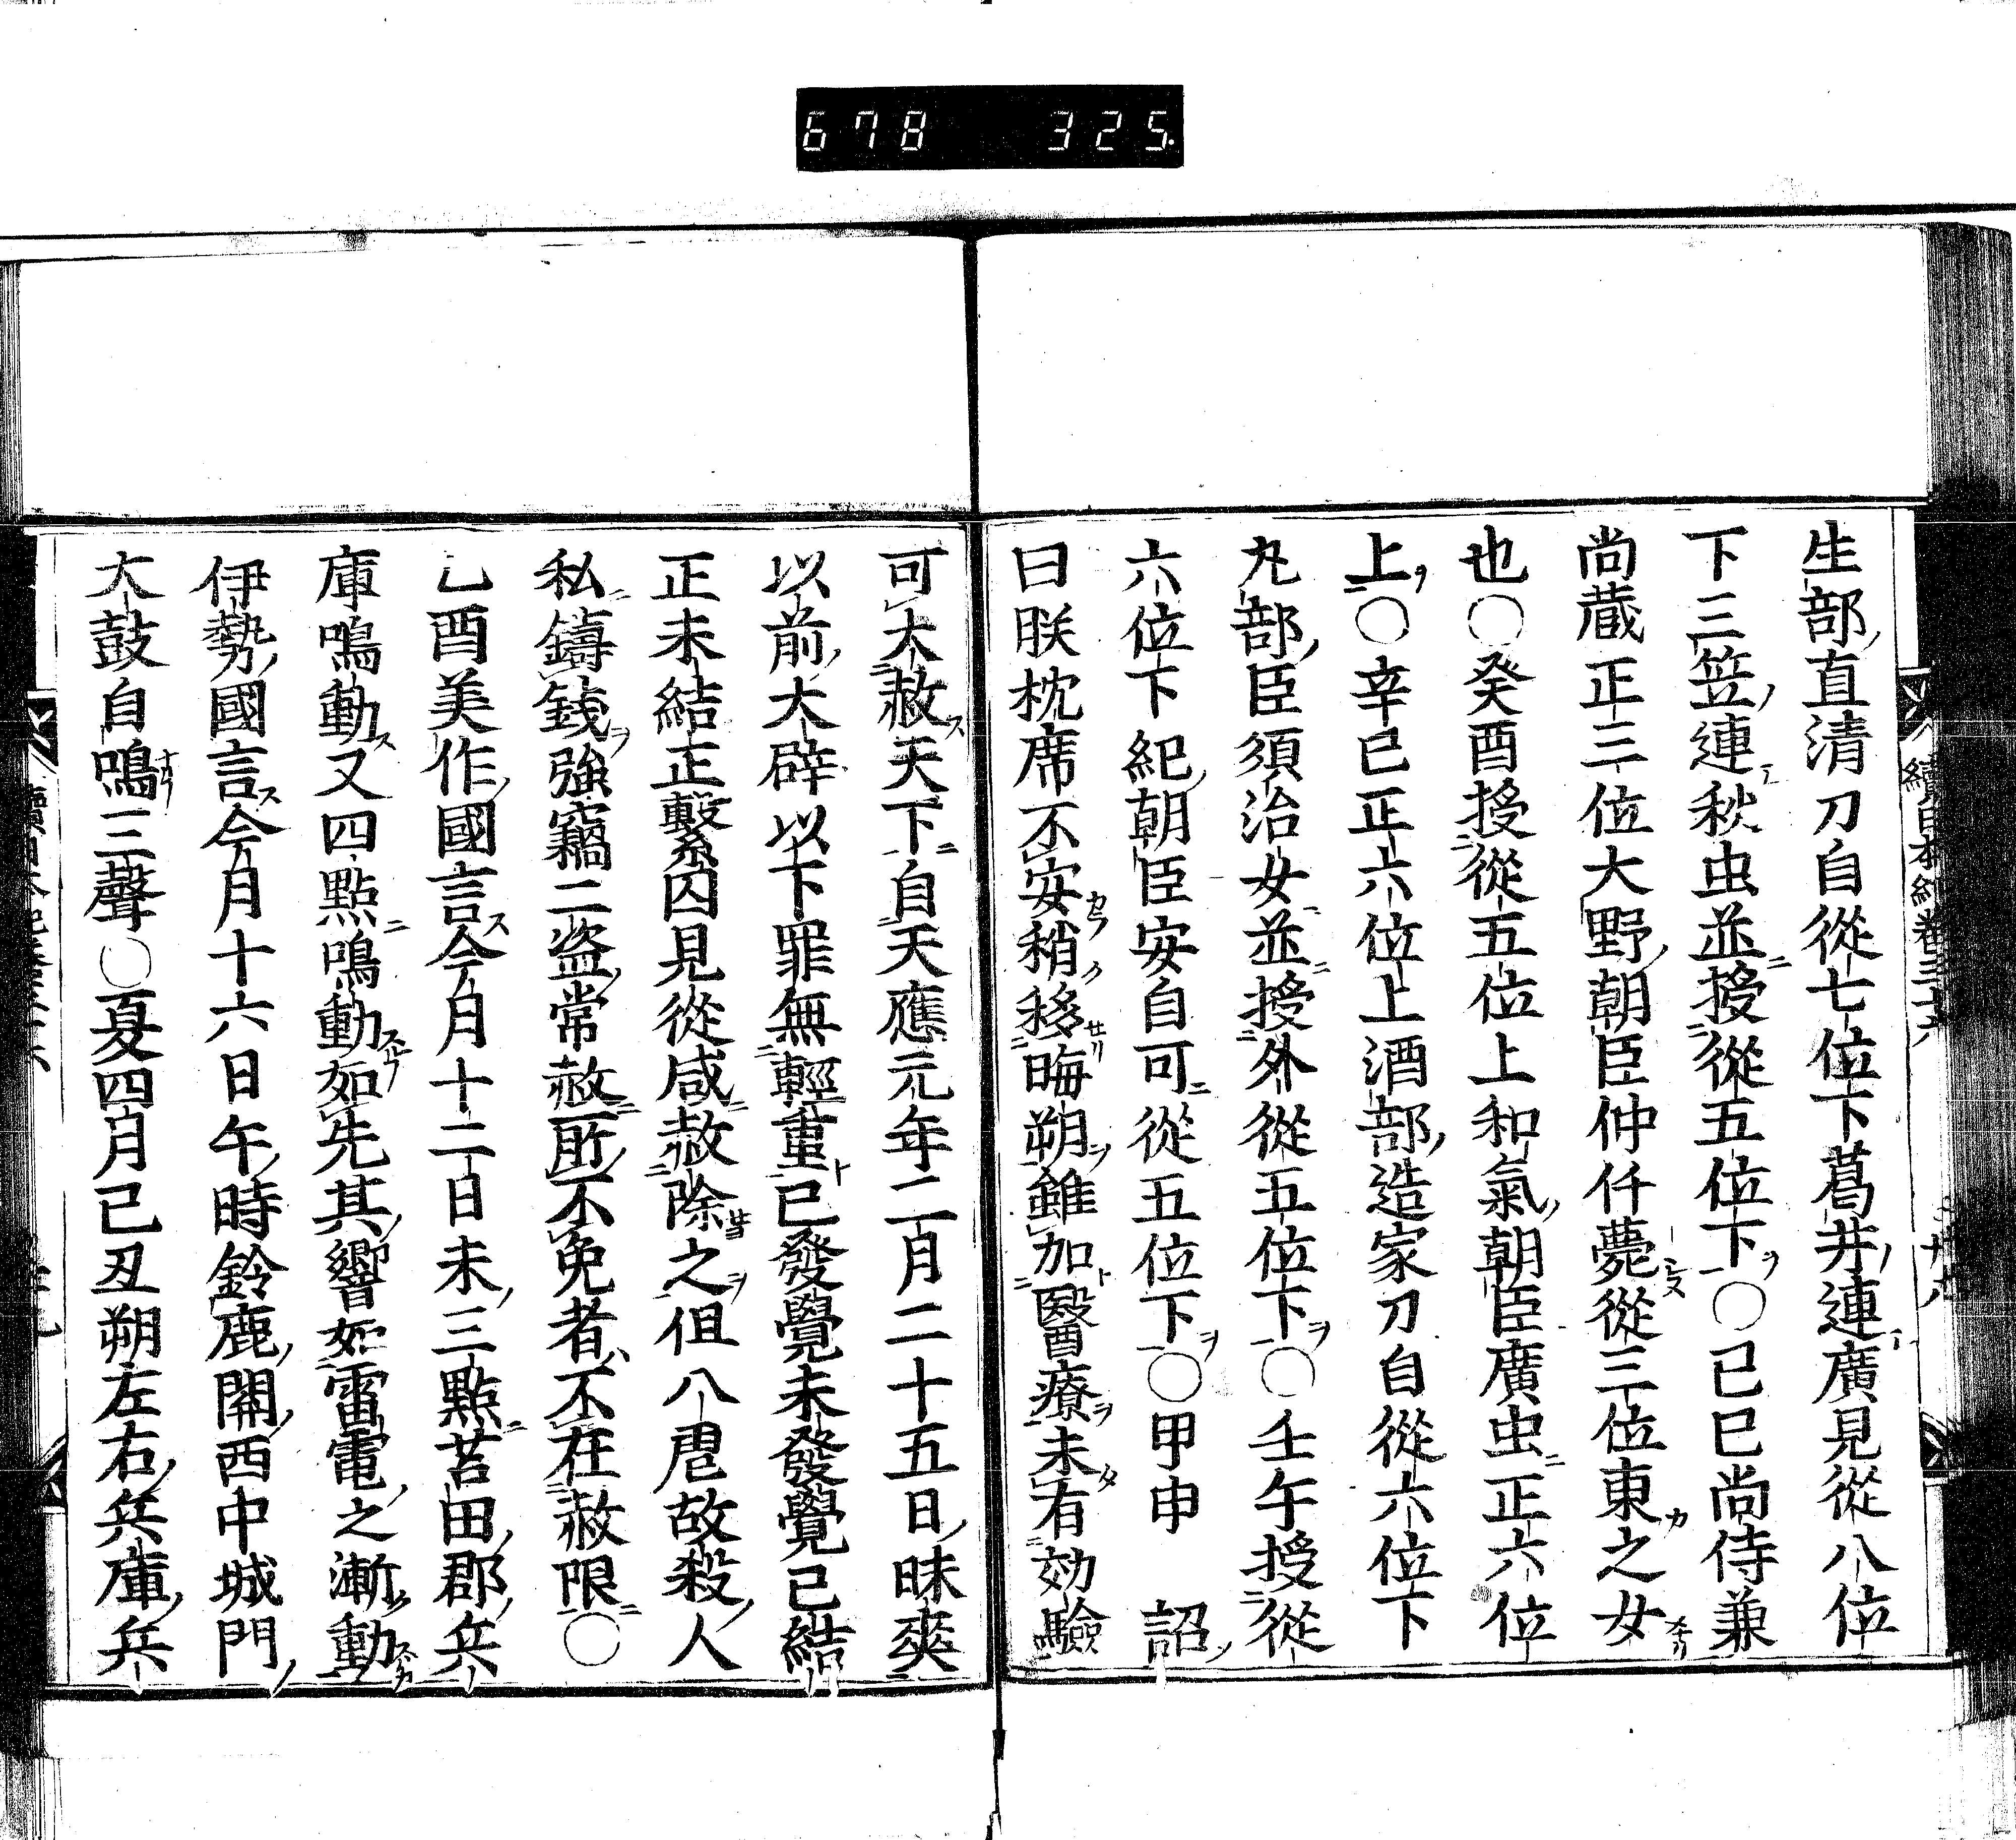 678 325
生部直清刀自從七位下葛井連廣見從八位
下三笠連秋虫並授從五位下○己巳尚侍兼
尚蔵正三位大野朝臣仲仟薨從三位東之女
也○癸酉授從五位上和氣朝臣廣虫正六位
上○辛巳正六位上酒部造家刀自從六位下
丸部臣須治女並授外從五位下○壬午授從
六位下紀朝臣安自可從五位下○甲申 詔
曰朕枕席不安稍移晦朔雖加醫療未有効驗
可大赦天下自天應元年二月二十五日昧爽
以前大辟以下罪無輕重已發覺未發覺已結
正未結正繫囚見從咸赦除之但八虐故殺人
私鑄錢強竊二盗常赦所不免者不在赦限○
乙酉美作國言今月十二日未三點苫田郡兵
庫鳴動又四點鳴動如先其響如雷電之漸動
伊勢國言今月十六日午時鈴鹿關西中城門
大鼓自鳴三聲○夏四月己丑朔左右兵庫兵